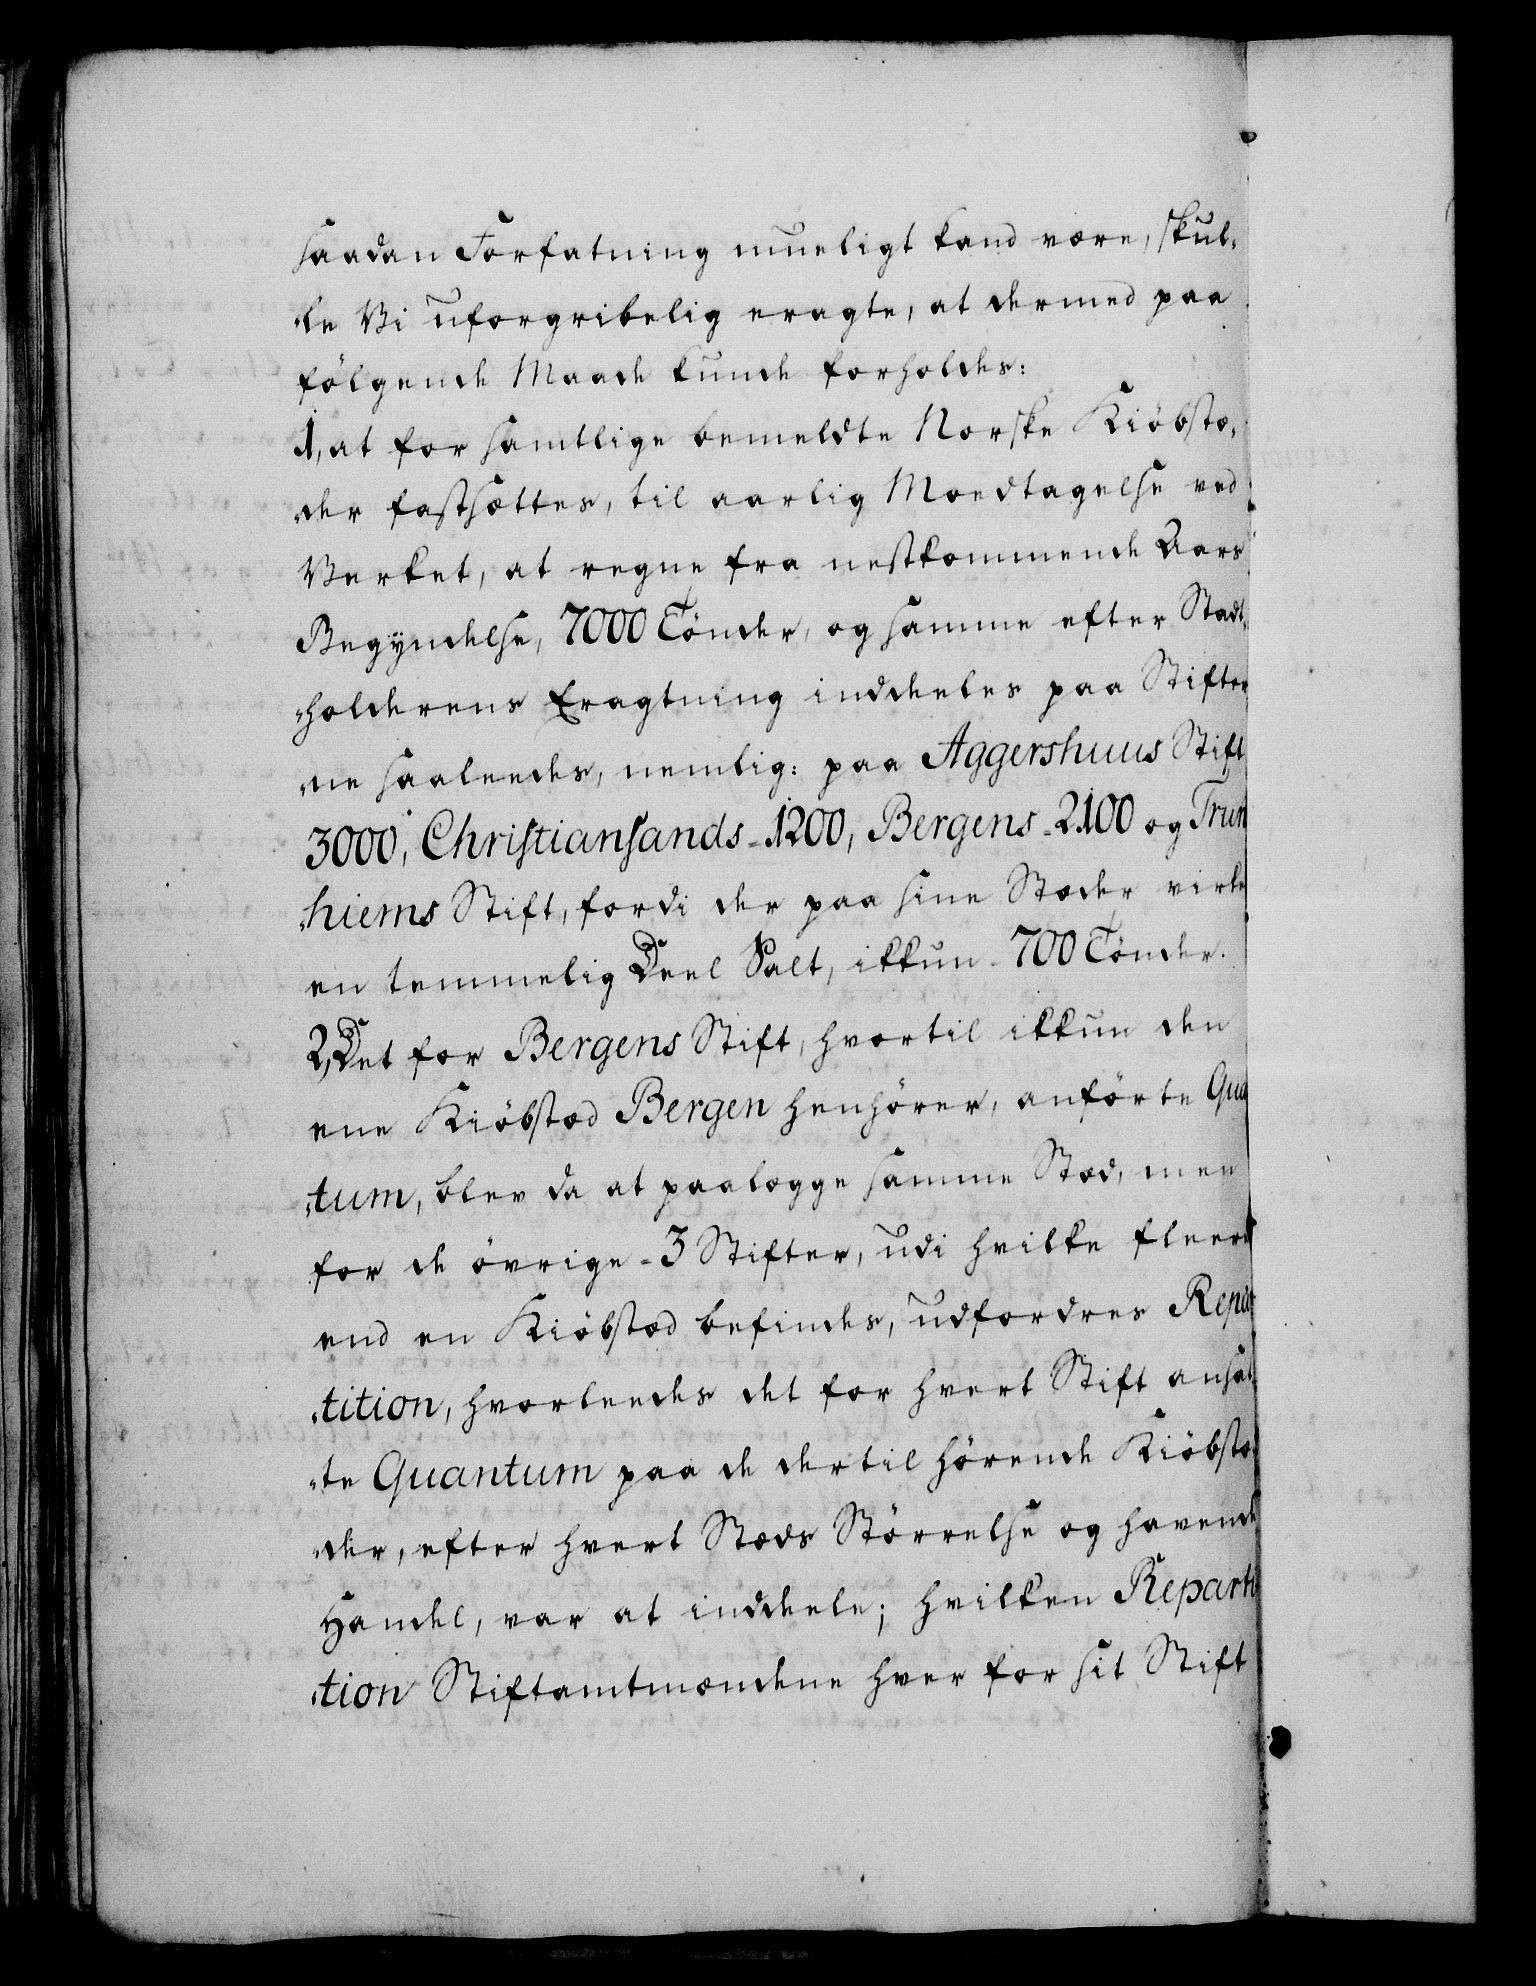 saadan Forfatning mueligt kand være, skul-
-le Vi uforgribelig eragte, at dermed paa
følgende Maade kunde forholdes:
1, at for samtlige bemeldte Norske Kiöbstæ-
-der fastsættes, til aarlig Moedtagelse ved
Verket, at regne fra nestkommende Aars
Begÿndelse, 7000 Tønder, og samme efter Stadt-
-holderens Eragtning inddeeles paa Stifter
-ne saaleedes, nemlig: paa Aggershuus Stift
3000, Christiansands - 1200, Bergens - 2100 og Trun
-hiems Stift, fordi der paa sine Stæder virke
en temmelig Deel Salt, ikkun - 700 Tønder.
2, Det for Bergens Stift, hvortil ikkun den
ene Kiöbstæd Bergen henhörer, anförte Qua
-tum, blev da at paalægge samme Stæd, men
for de övrige - 3 Stifter, udi hvilke fleere
end en Kiöbstæd befindes, udfordres Repar
-tition, hvorleedes det for hvert Stift ansat-
-te Quantum paa de dertil hörende Kiöbstæ-
-der, efter hvert Stæds Störrelse og havende
Handel, var at inddeele; hvilken Reparti
-tion Stiftamtmændene hver for sit Stift